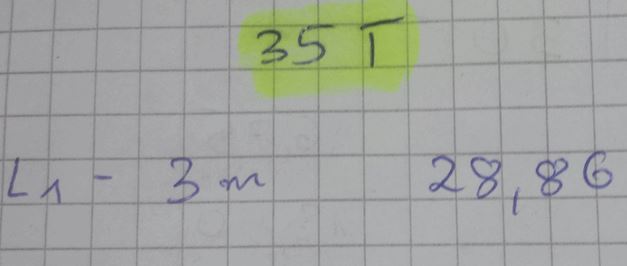 35 T
L1 - 3 m 28,86